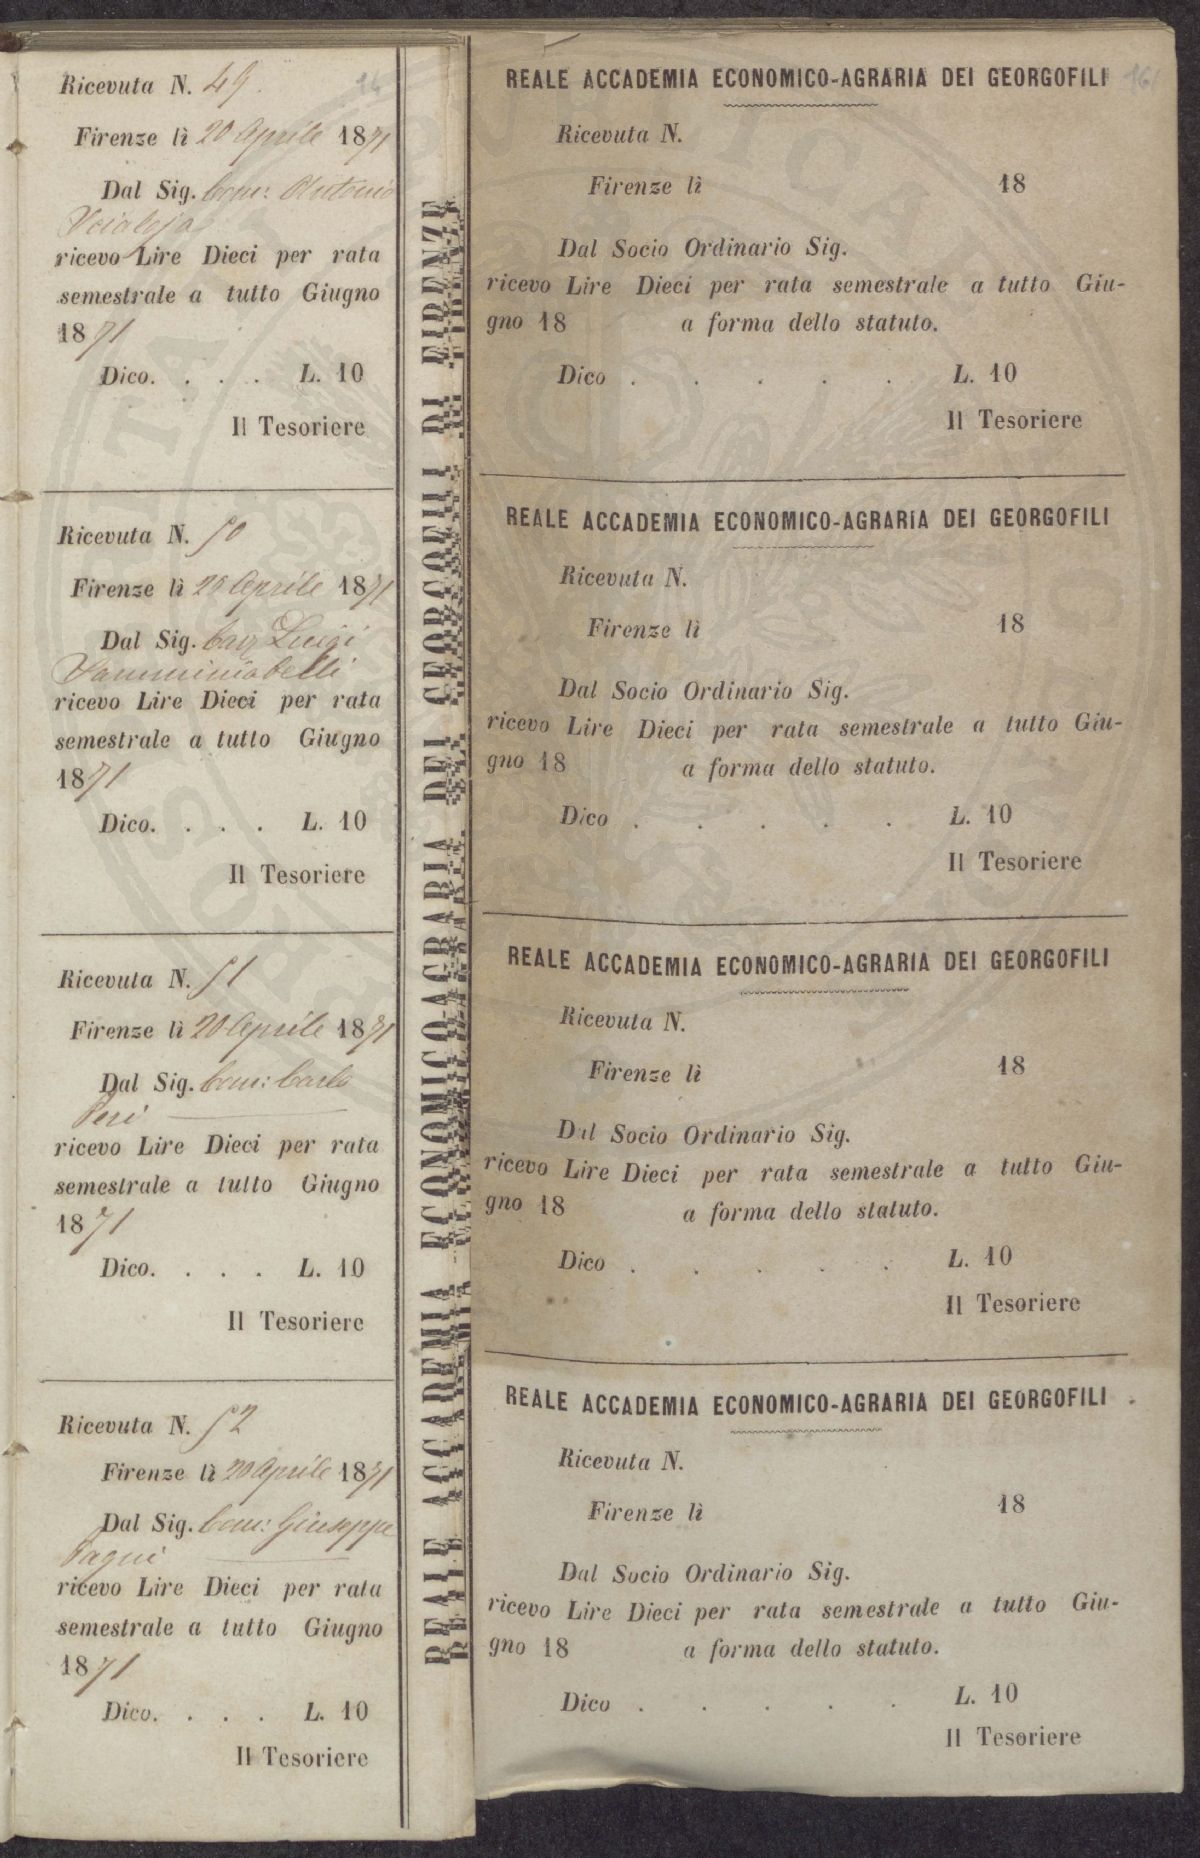 Ricevuta N. 49.
Firenze lì 20 Aprile 1871
Dal Sig. Com: Antonio
Scialoja
ricevo Lire Dieci per rata
semestrale a tutto Giugno
1871
Dico. . . . L. 10
Il Tesoriere
Ricevuta N. 50
Firenze lì 20 Aprile 1871
Dal Sig. Cav Luigi
Samminiatelli
ricevo Lire Dieci per rata
semestrale a tutto Giugno
1871
Dico. . . . L. 10
Il Tesoriere
Ricevuta N. 51
Firenze lì 20 Aprile 1871
Dal Sig. Com: Carlo
Peri
ricevo Lire Dieci per rata
semestrale a tutto Giugno
1871
Dico. . . . L. 10
Il Tesoriere
Ricevuta N. 52
Firenze lì 20 Aprile 1871
Dal Sig. Com: Giuseppe
Pagni
ricevo Lire Dieci per rata
semestrale a tutto Giugno
1871
Dico. . . . L. 10
Il Tesoriere
REALE ACCADEMIA ECONOMICO-AGRARIA DEI GEORGOFILI DI FIRENZE
REALE ACCADEMIA ECONOMICO-AGRARIA DEI GEORGOFILI
Ricevuta N.
Firenze lì 18
Dal Socio Ordinario Sig.
ricevo Lire Dieci per rata semestrale a tutto Giu-
gno 18 a forma dello statuto.
Dico . . . . . L. 10
Il Tesoriere
REALE ACCADEMIA ECONOMICO-AGRARIA DEI GEORGOFILI
Ricevuta N.
Firenze lì 18
Dal Socio Ordinario Sig.
ricevo Lire Dieci per rata semestrale a tutto Giu-
gno 18 a forma dello statuto.
Dico . . . . . L. 10
Il Tesoriere
REALE ACCADEMIA ECONOMICO-AGRARIA DEI GEORGOFILI
Ricevuta N.
Firenze lì 18
Dal Socio Ordinario Sig.
ricevo Lire Dieci per rata semestrale a tutto Giu-
gno 18 a forma dello statuto.
Dico . . . . . L. 10
Il Tesoriere
REALE ACCADEMIA ECONOMICO-AGRARIA DEI GEORGOFILI
Ricevuta N.
Firenze lì 18
Dal Socio Ordinario Sig.
ricevo Lire Dieci per rata semestrale a tutto Giu-
gno 18 a forma dello statuto.
Dico . . . . . L. 10
Il Tesoriere